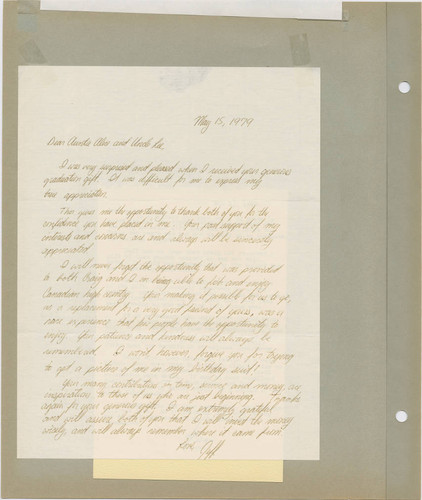 May 15, 1979
Dear Auntie Alice and Uncle
I was very surprised and pleased when I received your generous
graduation gift. It was difficult for me to express my
true appreciation.
This gives me the opportunity to thank both of you for the
confidence you have placed in me. Your past support of my
interests and are and always will be sincerely
appreciated.
I will never forget the opportunity that was provided
to both and I in being able to fish and enjoy
Canadian high country. You making it possible for us to go,
as a replacement for a very good friend of yours, was a
rare experience that few people have the opportunity to
enjoy. Your patience and kindness will always be
remembered. I won't, however, forgive you for trying
to get a picture of me in my birthday suit!
Your many contributions in time, and money, are
inspirations to those of us who are just beginning. Thanks
again for your generous gift. I am extremely grateful
and will assure both of you that I will invest the money
wisely, and will always remember where it came from.
Love,
Jeff